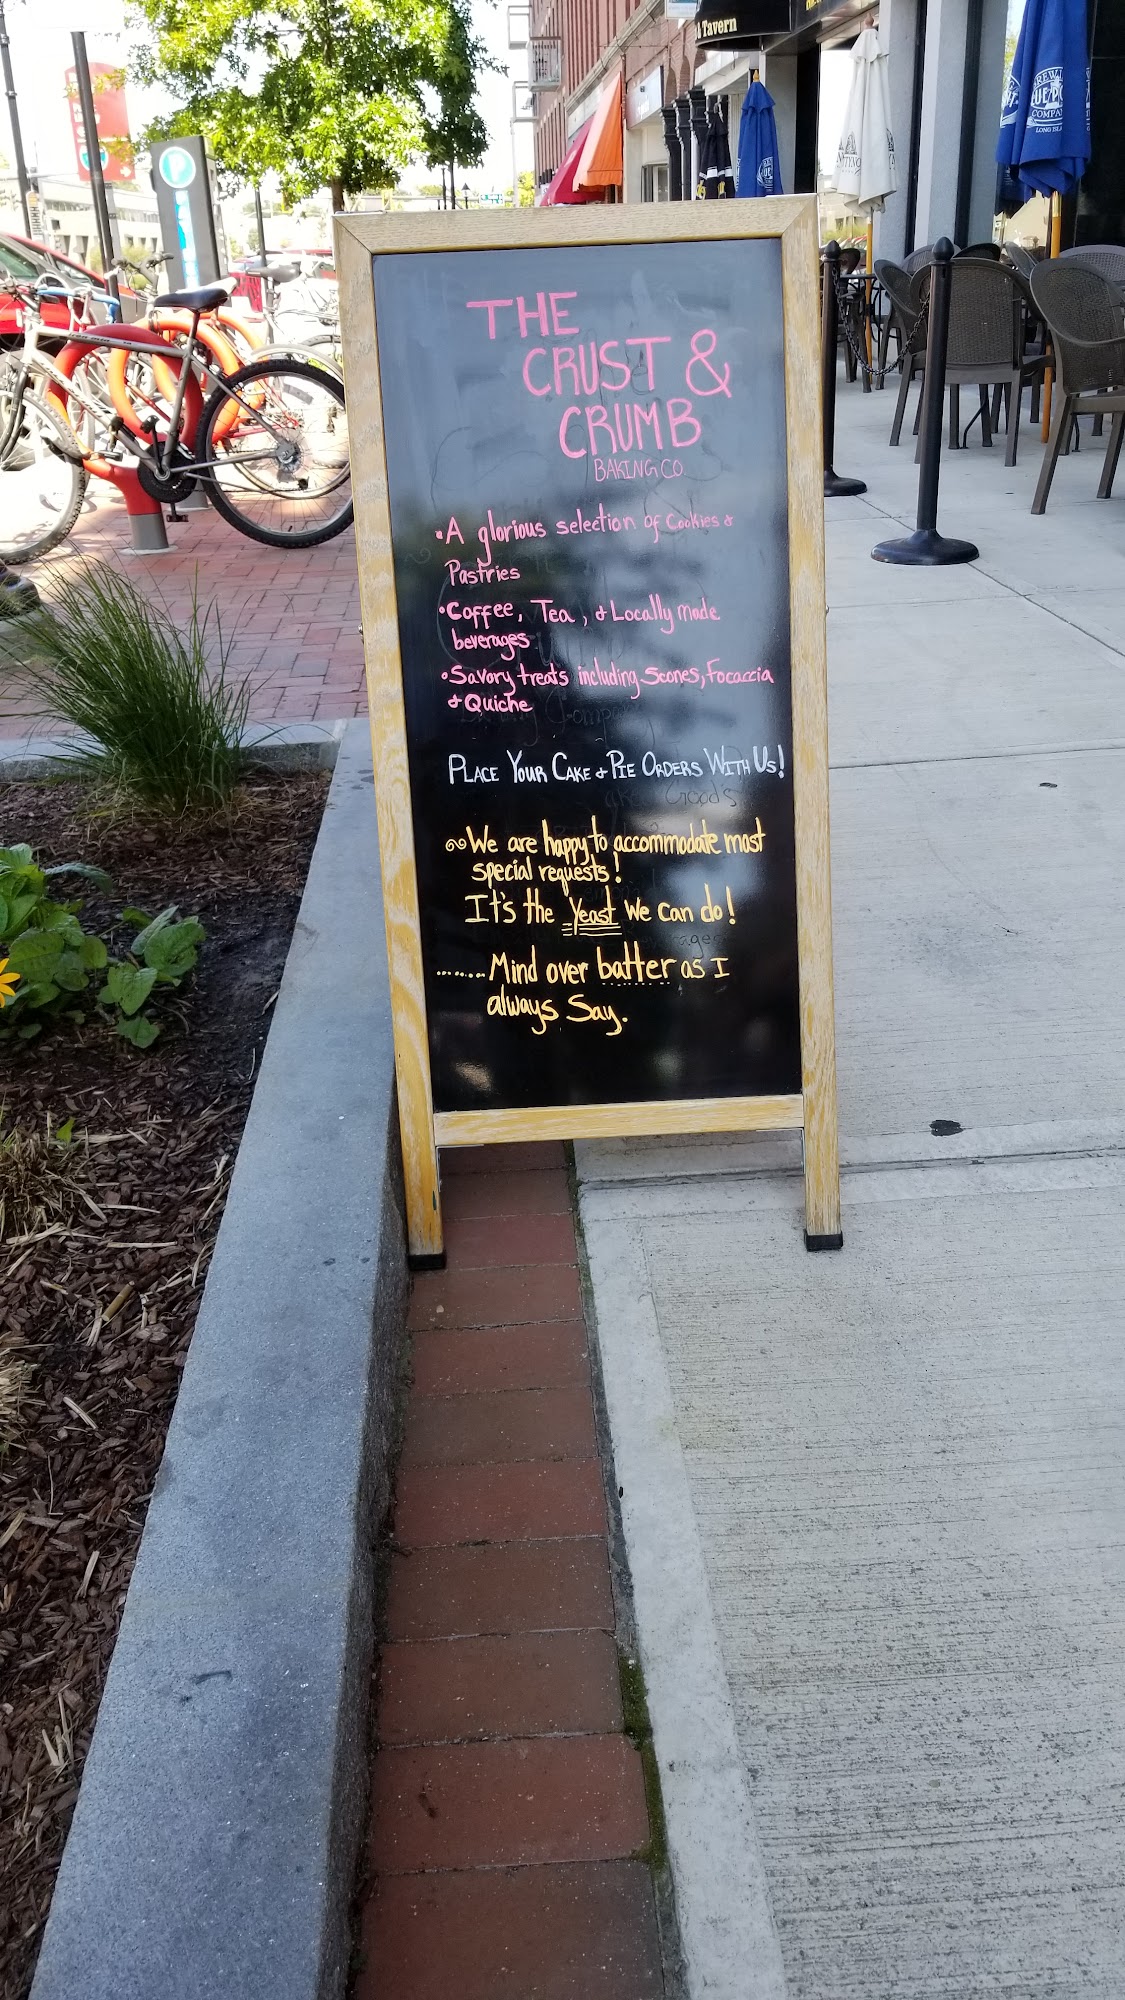 Tavern
P
COMPANY
LONG
THE
CRUST &
CRUMB
BAKING CO.
• A glorious selection of Cookies &
Pastries
• Coffee, Tea, & Locally made
beverages
• Savory treats including Scones, Focaccia
& Quiche
PLACE YOUR CAKE & PIE ORDERS WITH US!
We are happy to accommodate most
special requests!
It's the Yeast We Can do!
........Mind over batter as I
always Say.